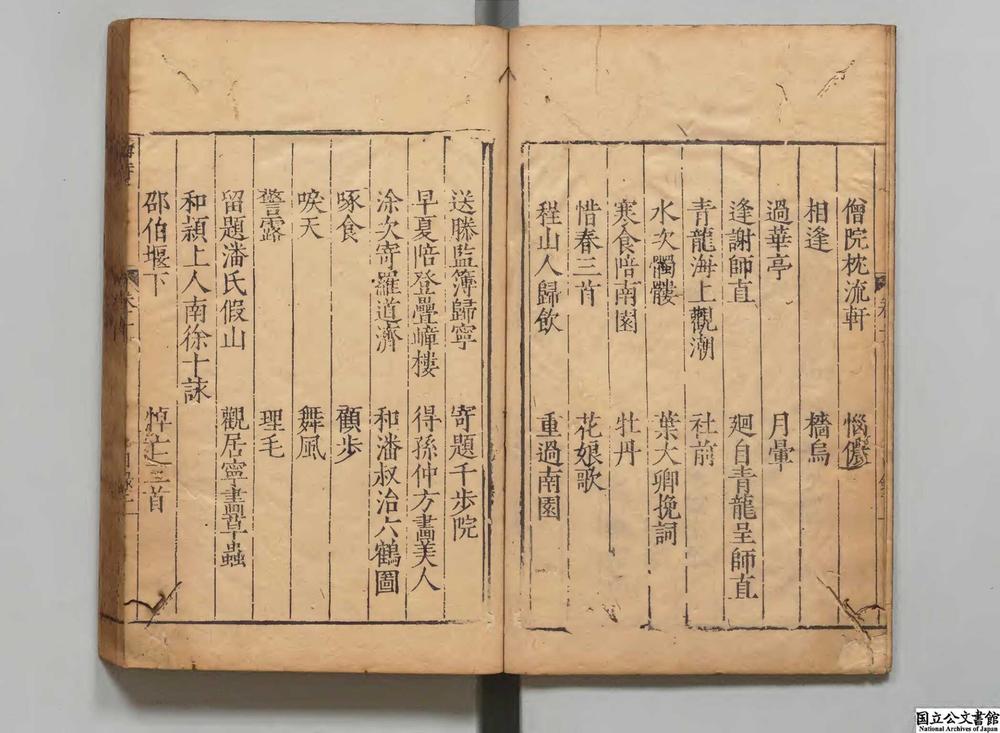 僧院枕流軒　惱儂
相逢　檣烏
過華亭　月暈
逢謝師直　廻自青龍呈師直
青龍海上觀潮　社前
水次髑髏　葉大卿挽詞
寒食陪南園　牡丹
惜春三首　花娘歌
程山人歸歙　重過南園
送滕監簿歸寧　寄題千步院
早夏陪登疊嶂樓　得孫仲方畵美人
涂次寄羅道濟　和潘叔治六鶴圖
啄食　顧步
唳天　舞風
警露　理毛
留題潘氏假山　觀居寧畵草蟲
和潁上人南徐十詠
邵伯堰下　悼亡三首
国立公文書館
National Archives of Japan